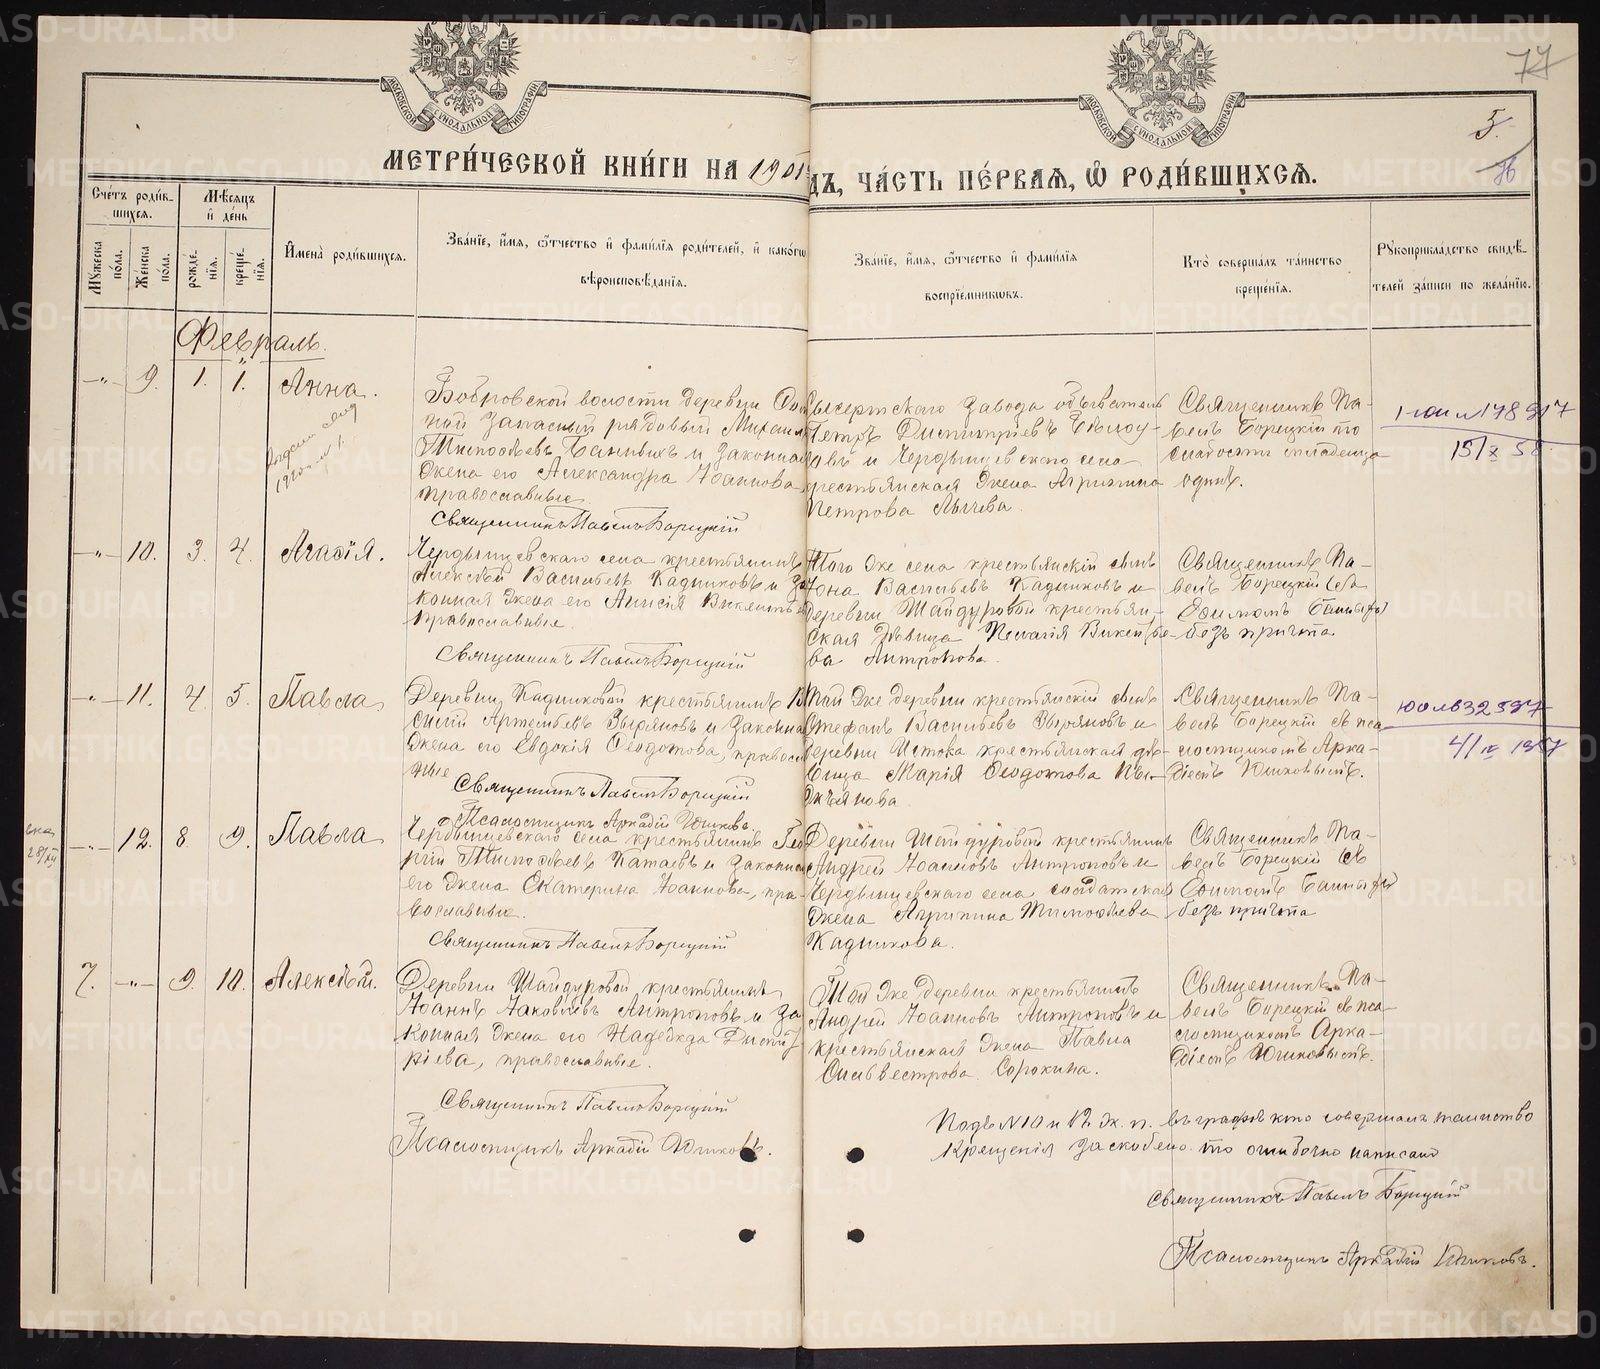 МЕТРИ́ЧЕСКОЙ КНИ́ГИ НА 1901
ДЪ, ЧА́СТЬ ПЕ́РВАѦ, Ѽ РОДИ́ВШИХСѦ.
77
5.
76
МОСКОВСКОЙ СѴНОДАЛЬНОЙ ТИПОГРАФІИ
МОСКОВСКОЙ СѴНОДАЛЬНОЙ ТИПОГРАФІИ
Сче́тъ роди́в-
шихсѧ.
Мѣ́сѧцъ
и҆ день
Мꙋ́жеска по́ла.
Же́нска по́ла.
рожде́-
нїѧ.
креще́-
нїѧ.
И҆мена̀ роди́вшихсѧ.
Зва́нїе, и҆́мѧ, ѻ҆́тчество и҆ фами́лїѧ роди́телей, и҆ како́гѡ
вѣроисповѣ́данїѧ.
Зва́нїе, и҆́мѧ, ѻ҆́тчество и҆ фами́лїѧ
воспрїе́мникѡвъ.
Кто̀ соверша́лъ та́инство
креще́нїѧ.
Рꙋкоприкла́дство свидѣ́-
телей за́писи по жела́нїю.
Февраль.
-„- 9. 1. 1. Анна.
Бобровской волости деревни
ной запасный рядовой Михаил
Тимофѣевъ Банныхъ и законная
жена его Александра Іоаннова,
православные.
Священникъ Павелъ Борецкій
Сысертскаго завода обыватель
Петръ Димитріевъ
и Чердынцевскаго села
крестьянская жена Агрипина
Петрова Лычева.
Священникъ Па-
велъ Борецкій по
слабости младенца
одинъ.
15/X 58
-„- 10. 3. 4. Агаѳія.
Чердынцевскаго села крестьянинъ
Алексѣй Васильевъ Кадниковъ и за
конная жена его Анисія Викентье
православные.
Священникъ Павелъ Борецкій
Того же села крестьянскій сынъ
Іона Васильевъ Кадниковъ и
деревни Шайдуровой крестьян-
ская дѣвица Пелагія Викентье-
ва Антропова.
Священникъ Па-
велъ Борецкій (съ
безъ причта
-„- 11. 4. 5. Павла
Деревни Кадниковой крестьянинъ Ва
силій Артемьевъ Зыряновъ и законна
жена его Евдокія Ѳеодотова, правосл
ные
Священникъ Павелъ Борецкій
Псаломщикъ Аркадій Юшковъ.
Той же деревни крестьянскій сынъ
Стефанъ Васильевъ Зыряновъ и
деревни Истока крестьянская дѣ-
вица Марія Ѳеодотова
Священникъ Па-
велъ Борецкій съ пса
ломщикомъ Арка-
діемъ Юшковымъ.
-„- 12. 8 9. Павла
Чердынцевскаго села крестьянинъ Гео
ргій Тимофѣевъ Катаевъ и законна
его жена Екатерина Іоаннова, пра-
вославные.
Священникъ Павелъ Борецкій
Деревни Шайдуровой крестьянинъ
Андрей Іоанновъ Антроповъ и
Чердынцевскаго села солдатская
жена Агрипина Тимофѣева
Кадникова.
Священникъ Па-
велъ Борецкій (съ
безъ причта
7. -„- 9. 10. Алексѣй.
Деревни Шайдуровой, крестьянинъ
Іоаннъ Іаковлевъ Антроповъ и за
конная жена его Надежда Димит
ріева, православные.
Священникъ Павелъ Борецкій
Псаломщикъ Аркадій Юшковъ.
Той же деревни крестьянинъ
Андрей Іоанновъ Антроповъ и
крестьянская жена Павла
Сильвестрова Сорокина.
Священникъ Па-
велъ Борецкій съ пса
ломщикомъ Арка-
діемъ Юшковымъ.
Подъ №10 и 12 ж. п. въ графѣ кто совершалъ таинство
крещенія заскоблено. то ошибочно написано
Священникъ Павелъ Борецкій
Псаломщикъ Аркадій Юшковъ.
METRIKI.GASO-URAL.RU